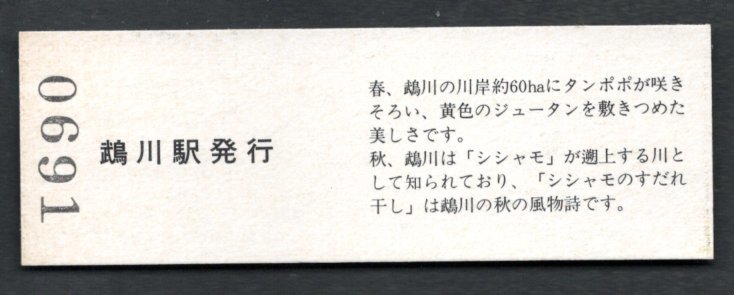 0691
鵡川駅発行
春、鵡川の川岸約60haにタンポポが咲き
そろい、黄色のジュータンを敷きつめた
美しさです。
秋、鵡川は「シシャモ」が遡上する川と
して知られており、「シシャモのすだれ
干し」は鵡川の秋の風物詩です。